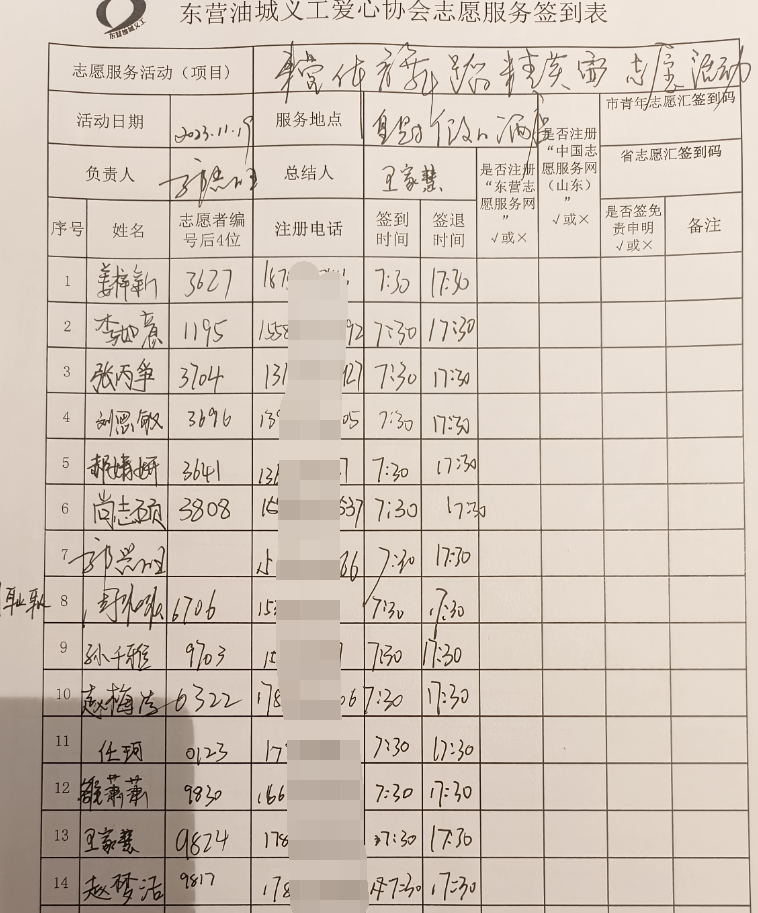 东营油城义工
东营油城义工爱心协会志愿服务签到表
志愿服务活动（项目） 志愿活动
活动日期 2023.11.19 服务地点 市青年志愿汇签到码
负责人 总结人 王家慧 是否注册“东营志愿服务网” √或× 是否注册“中国志愿服务网（山东）” √或× 省志愿汇签到码
序号 姓名 志愿者编号后4位 注册电话 签到时间 签退时间 是否签免责申明 √或× 备注
1 姜梓新 3627 187 7:30 17:30
2 1195 1558 92 7:30 17:30
3 张丙争 3704 131 27 7:30 17:30
4 刘思敏 3696 139 05 7:30 17:30
5 郝婧妍 3641 136 7 7:30 17:30
6 尚志硕 3808 15 537 7:30 17:30
7 15 66 7:30 17:30
8 6706 153 7:30 17:30
9 孙千雅 9703 15 7:30 17:30
10 赵梅洁 6322 178 06 7:30 17:30
11 任珂 0123 17 7:30 17:30
12 9830 166 7:30 17:30
13 王家慧 9824 178 7:30 17:30
14 赵梦洁 9817 178 7:30 17:30